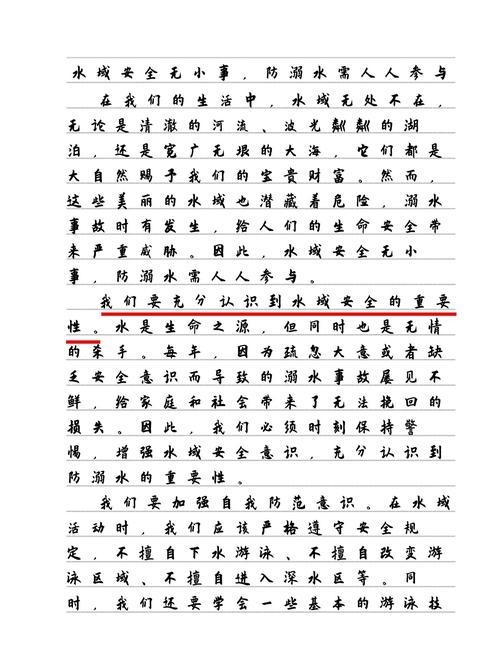 水域安全无小事，防溺水需人人参与
在我们的生活中，水域无处不在，
无论是清澈的河流、波光粼粼的湖
泊，还是宽广无垠的大海，它们都是
大自然赐予我们的宝贵财富。然而，
这些美丽的水域也潜藏着危险，溺水
事故时有发生，给人们的生命安全带
来严重威胁。因此，水域安全无小
事，防溺水需人人参与。
我们要充分认识到水域安全的重要
性。水是生命之源，但同时也是无情
的杀手。每年，因为疏忽大意或者缺
乏安全意识而导致的溺水事故屡见不
鲜，给家庭和社会带来了无法挽回的
损失。因此，我们必须时刻保持警
惕，增强水域安全意识，充分认识到
防溺水的重要性。
我们要加强自我防范意识。在水域
活动时，我们应该严格遵守安全规
定，不擅自下水游泳、不擅自改变游
泳区域、不擅自进入深水区等。同
时，我们还要学会一些基本的游泳技